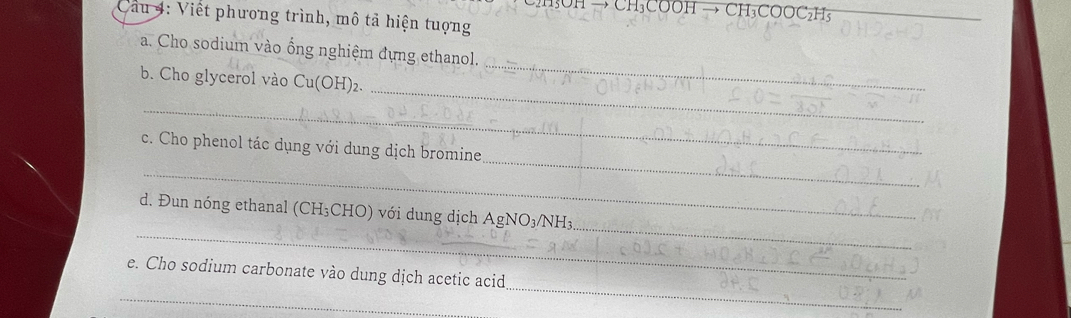 C₂H₅OH → CH₃COOH → CH₃COOC₂H₅
Câu 4: Viết phương trình, mô tả hiện tượng
a. Cho sodium vào ống nghiệm đựng ethanol.
b. Cho glycerol vào Cu(OH)₂.
c. Cho phenol tác dụng với dung dịch bromine
d. Đun nóng ethanal (CH₃CHO) với dung dịch AgNO₃/NH₃
e. Cho sodium carbonate vào dung dịch acetic acid